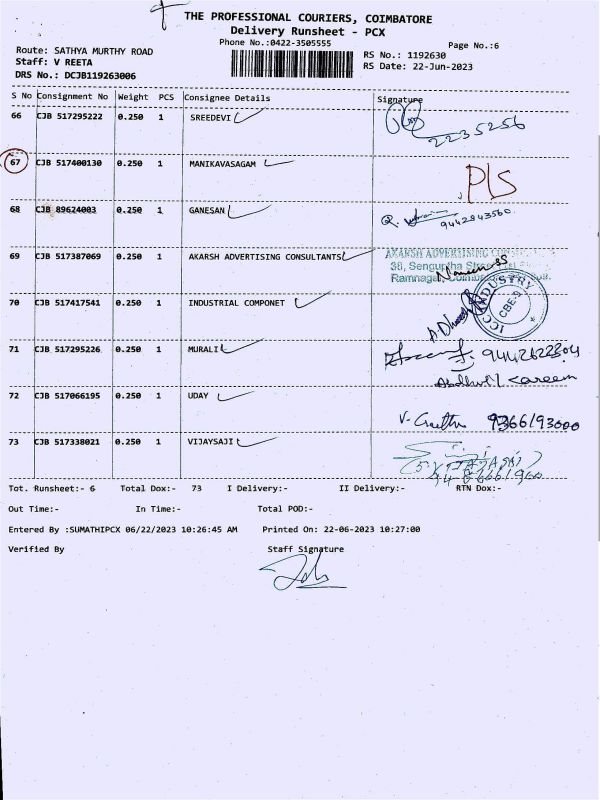 THE PROFESSIONAL COURIERS, COIMBATORE
Delivery Runsheet - PCX
Phone No.:0422-3505555
Page No.:6
Route: SATHYA MURTHY ROAD
RS No.: 1192630
Staff: V REETA
RS Date: 22-Jun-2023
DRS No.: DCJB119263006
S No Consignment No Weight PCS Consignee Details Signature
66 CJB 517295222 0.250 1 SREEDEVI
2235256
67 CJB 517400130 0.250 1 MANIKAVASAGAM
PLS
68 CJB 89624003 0.250 1 GANESAN
9442843560
69 CJB 517387069 0.250 1 AKARSH ADVERTISING CONSULTANTS
AKARSH ADVERTISING
38, Senguptha Street
Ramnagar, Coimbatore
70 CJB 517417541 0.250 1 INDUSTRIAL COMPONET
INDUSTRY
CBE-9
71 CJB 517295226 0.250 1 MURALI
9442622304
Abdhul Kareem
72 CJB 517066195 0.250 1 UDAY
9366193000
73 CJB 517338021 0.250 1 VIJAYSAJI
Tot. Runsheet:- 6 Total Dox:- 73 I Delivery:- II Delivery:- RTN Dox:-
Out Time:- In Time:- Total POD:-
Entered By :SUMATHIPCX 06/22/2023 10:26:45 AM Printed On: 22-06-2023 10:27:00
Verified By Staff Signature